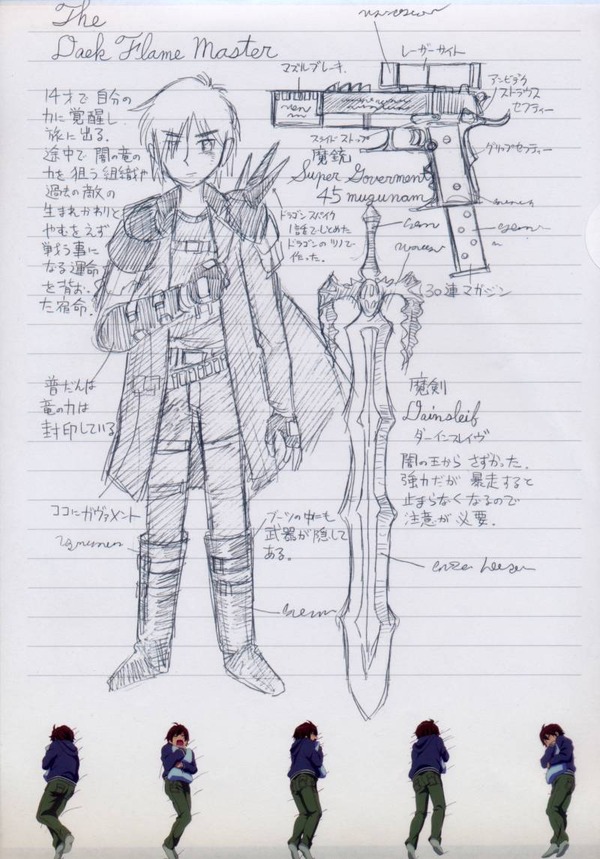 The
Daek Flame Master
14才で自分の
力に覚醒し
旅に出る.
途中で闇の竜の
力を狙う組織や
過去の敵の
生まれかわりと
やむをえず
戦う事に
なる運命
を背お.
た宿命.
普だんは
竜の力は
封印している
ココにガヴァメント
マズルブレーキ.
レーザーサイト
アンビデク
ストラウス
セフティー
スライドストップ
グリップセフティー
魔銃
Super Goverment
45 mugunam
30連マガジン
ドラゴンスパイク
1話でしとめた
ドラゴンのツノで
作った.
魔剣
Dainsleif
ダーインスレイヴ
闇の王からさずかった.
強力だが暴走すると
止まらなくなるので
注意が必要.
ブーツの中にも
武器が隠して
ある.